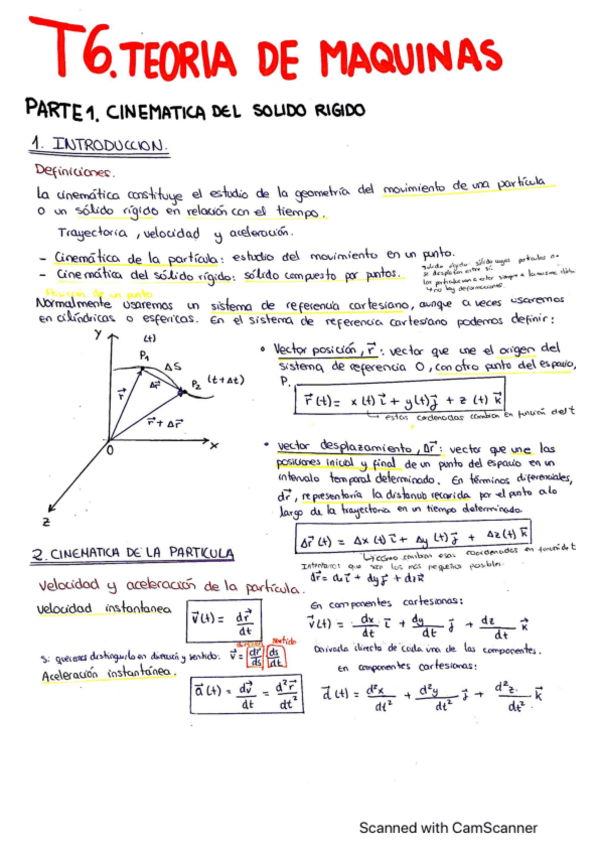 T6. TEORIA DE MAQUINAS
PARTE 1. CINEMATICA DEL SOLIDO RIGIDO
1. INTRODUCCION.
Definiciones.
La cinemática constituye el estudio de la geometría del movimiento de una partícula
o un sólido rígido en relación con el tiempo.
Trayectoria, velocidad y aceleración.
- Cinemática de la partícula: estudio del movimiento en un punto.
- Cinemática del sólido rígido: sólido compuesto por puntos.
sólido rígido: sólido cuyas partículas no
se desplazan entre sí.
no hay deformaciones.
Posición de un punto
Normalmente usaremos un sistema de referencia cartesiano, aunque a veces usaremos
en cilíndricas o esféricas. En el sistema de referencia cartesiano podemos definir:
y
(t)
P₁
ΔS
Δr⃗
P₂ (t+Δt)
r⃗
r⃗ + Δr⃗
O
x
z
• Vector posición, r⃗: vector que une el origen del
sistema de referencia O, con otro punto del espacio,
P.
r⃗(t) = x(t) i⃗ + y(t) j⃗ + z(t) k⃗
estas coordenadas cambian en función del t
• vector desplazamiento, Δr⃗: vector que une las
posiciones inicial y final de un punto del espacio en un
intervalo temporal determinado. En términos diferenciales,
dr⃗, representaría la distancia recorrida por el punto a lo
largo de la trayectoria en un tiempo determinado.
Δr⃗(t) = Δx(t) i⃗ + Δy(t) j⃗ + Δz(t) k⃗
como cambian esas coordenadas en función de t
2. CINEMATICA DE LA PARTICULA
Intentamos que sea lo más pequeño posible.
Δr⃗ = dx i⃗ + dy j⃗ + dz k⃗
Velocidad y aceleración de la partícula.
Velocidad instantanea
v⃗(t) = dr⃗/dt
En componentes cartesianas:
v⃗(t) = dx/dt i⃗ + dy/dt j⃗ + dz/dt k⃗
sentido
Si quieres distinguirlo en dirección y sentido: v⃗ = dr⃗/ds ds/dt
Derivada directa de cada una de las componentes.
Aceleración instantánea.
a⃗(t) = dv⃗/dt = d²r⃗/dt²
En componentes cartesianas:
a⃗(t) = d²x/dt² i⃗ + d²y/dt² j⃗ + d²z/dt² k⃗
Scanned with CamScanner